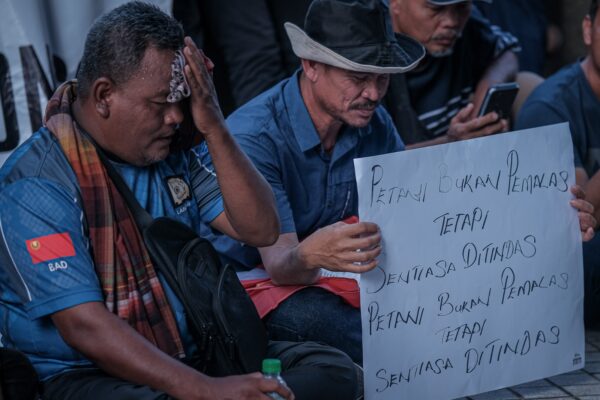 BAD
PETANI BUKAN PEMALAS
TETAPI
SENTIASA DITINDAS
PETANI BUKAN PEMALAS
TETAPI
SENTIASA DITINDAS